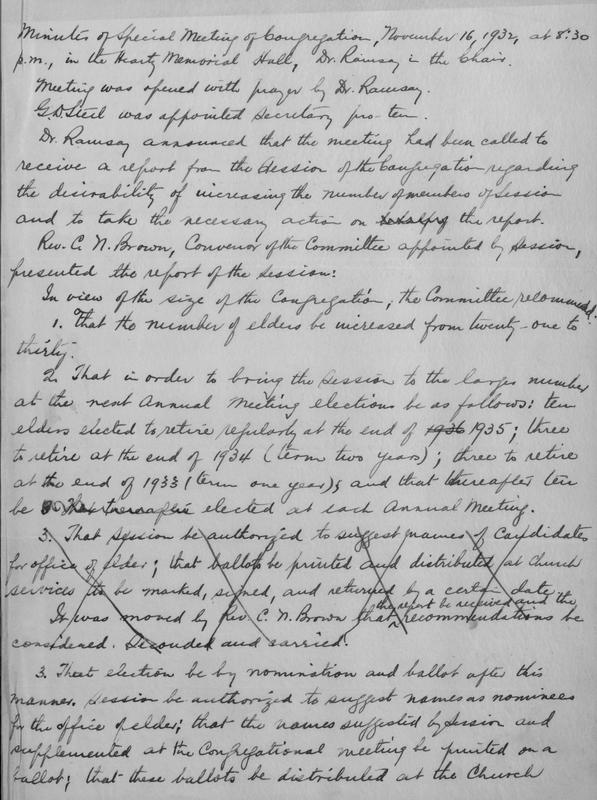 Minutes of Special Meeting of Congregation, November 16, 1932, at 8:30
p.m., in the Hearty Memorial Hall, Dr. Ramsay in the Chair.
Meeting was opened with prayer by Dr. Ramsay.
G.D. Steil was appointed Secretary pro-tem.
Dr. Ramsay announced that the meeting had been called to
receive a report from the Session of the Congregation regarding
the desirability of increasing the number of members of Session
and to take the necessary action on the report.
Rev. C. N. Brown, Convenor of the Committee appointed by Session,
presented the report of the Session:
In view of the size of the Congregation, the Committee recommend:
1. That the number of elders be increased from twenty-one to
thirty.
2. That in order to bring the Session to the larger number
at the next Annual Meeting elections be as follows: ten
elders elected to retire regularly at the end of 1936 1935; three
to retire at the end of 1934 (term two years); three to retire
at the end of 1933 (term one year); and that thereafter ten
be elected at each Annual Meeting.
3. That Session be authorized to suggest names of candidates
for office of elder; that ballots be printed and distributed at Church
services to be marked, signed, and returned by a certain date.
It was moved by Rev. C. N. Brown that the report be received and the recommendations be
considered. Seconded and carried.
3. That election be by nomination and ballot after this
manner. Session be authorized to suggest names as nominees
for the office of elder; that the names suggested by Session and
supplemented at the Congregational meeting be printed on a
ballot; that these ballots be distributed at the Church